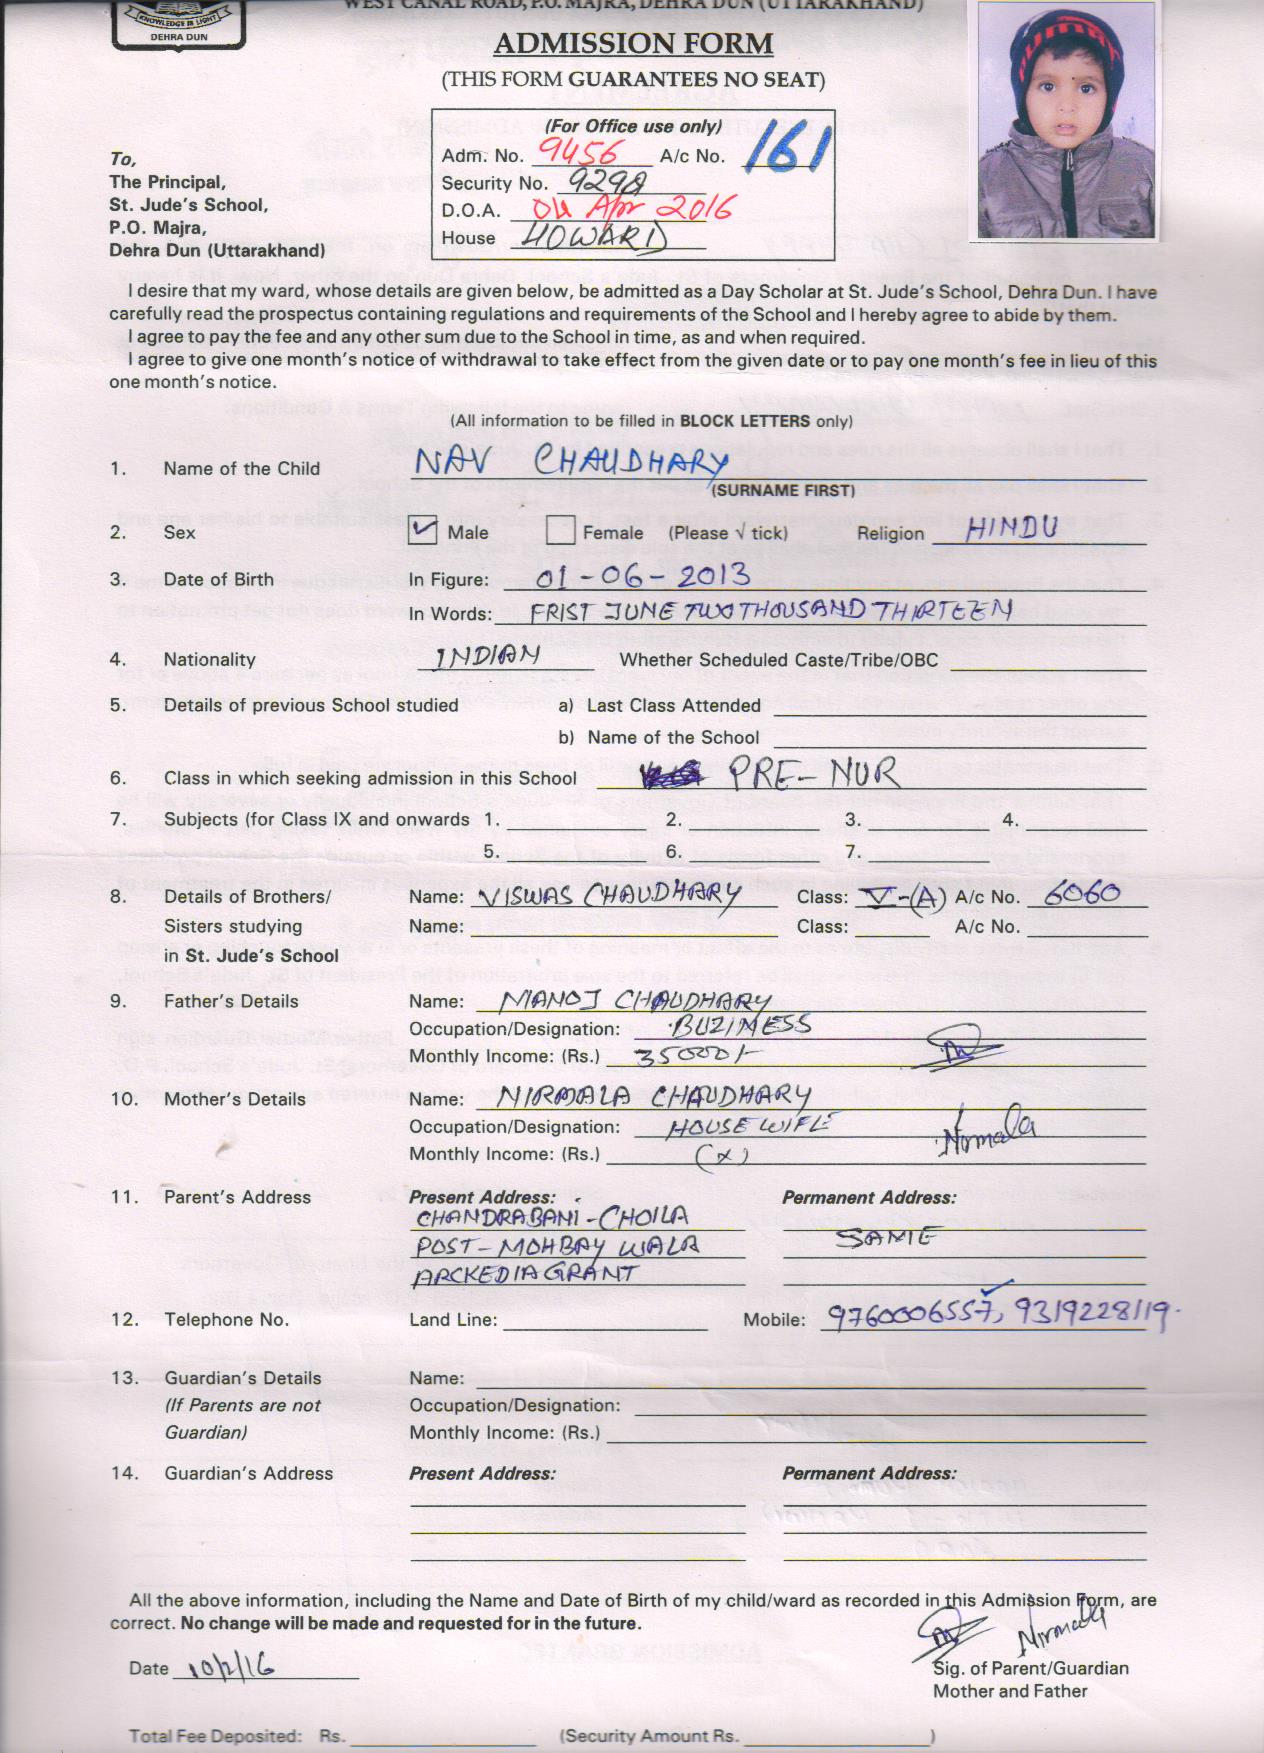 WEST CANAL ROAD, P.O. MAJRA, DEHRA DUN (UTTARAKHAND)
KNOWLEDGE IS LIGHT
DEHRA DUN
ADMISSION FORM
(THIS FORM GUARANTEES NO SEAT)
(For Office use only)
Adm. No. 9456 A/c No. 161
Security No. 9298
D.O.A. 04 Apr 2016
House HOWARD
To,
The Principal,
St. Jude's School,
P.O. Majra,
Dehra Dun (Uttarakhand)
I desire that my ward, whose details are given below, be admitted as a Day Scholar at St. Jude's School, Dehra Dun. I have
carefully read the prospectus containing regulations and requirements of the School and I hereby agree to abide by them.
I agree to pay the fee and any other sum due to the School in time, as and when required.
I agree to give one month's notice of withdrawal to take effect from the given date or to pay one month's fee in lieu of this
one month's notice.
(All information to be filled in BLOCK LETTERS only)
1. Name of the Child NAV CHAUDHARY
(SURNAME FIRST)
2. Sex ✓ Male Female (Please √ tick) Religion HINDU
3. Date of Birth In Figure: 01-06-2013
In Words: FRIST JUNE TWO THOUSAND THIRTEEN
4. Nationality INDIAN Whether Scheduled Caste/Tribe/OBC
5. Details of previous School studied a) Last Class Attended
b) Name of the School
6. Class in which seeking admission in this School PRE-NUR
7. Subjects (for Class IX and onwards 1. 2. 3. 4.
5. 6. 7.
8. Details of Brothers/ Name: VISWAS CHAUDHARY Class: V-(A) A/c No. 6060
Sisters studying Name: Class: A/c No.
in St. Jude's School
9. Father's Details Name: MANOJ CHAUDHARY
Occupation/Designation: BUZINESS
Monthly Income: (Rs.) 35000/-
10. Mother's Details Name: NIRMALA CHAUDHARY
Occupation/Designation: HOUSE WIFE
Monthly Income: (Rs.) (x)
Nirmala
11. Parent's Address Present Address: Permanent Address:
CHANDRABANI-CHOILA
POST-MOHBAY WALA SAME
ARCKEDIA GRANT
12. Telephone No. Land Line: Mobile: 9760006557, 9319228119
13. Guardian's Details Name:
(If Parents are not Occupation/Designation:
Guardian) Monthly Income: (Rs.)
14. Guardian's Address Present Address: Permanent Address:
All the above information, including the Name and Date of Birth of my child/ward as recorded in this Admission Form, are
correct. No change will be made and requested for in the future.
Nirmala
Date 10/2/16 Sig. of Parent/Guardian
Mother and Father
Total Fee Deposited: Rs. (Security Amount Rs. )